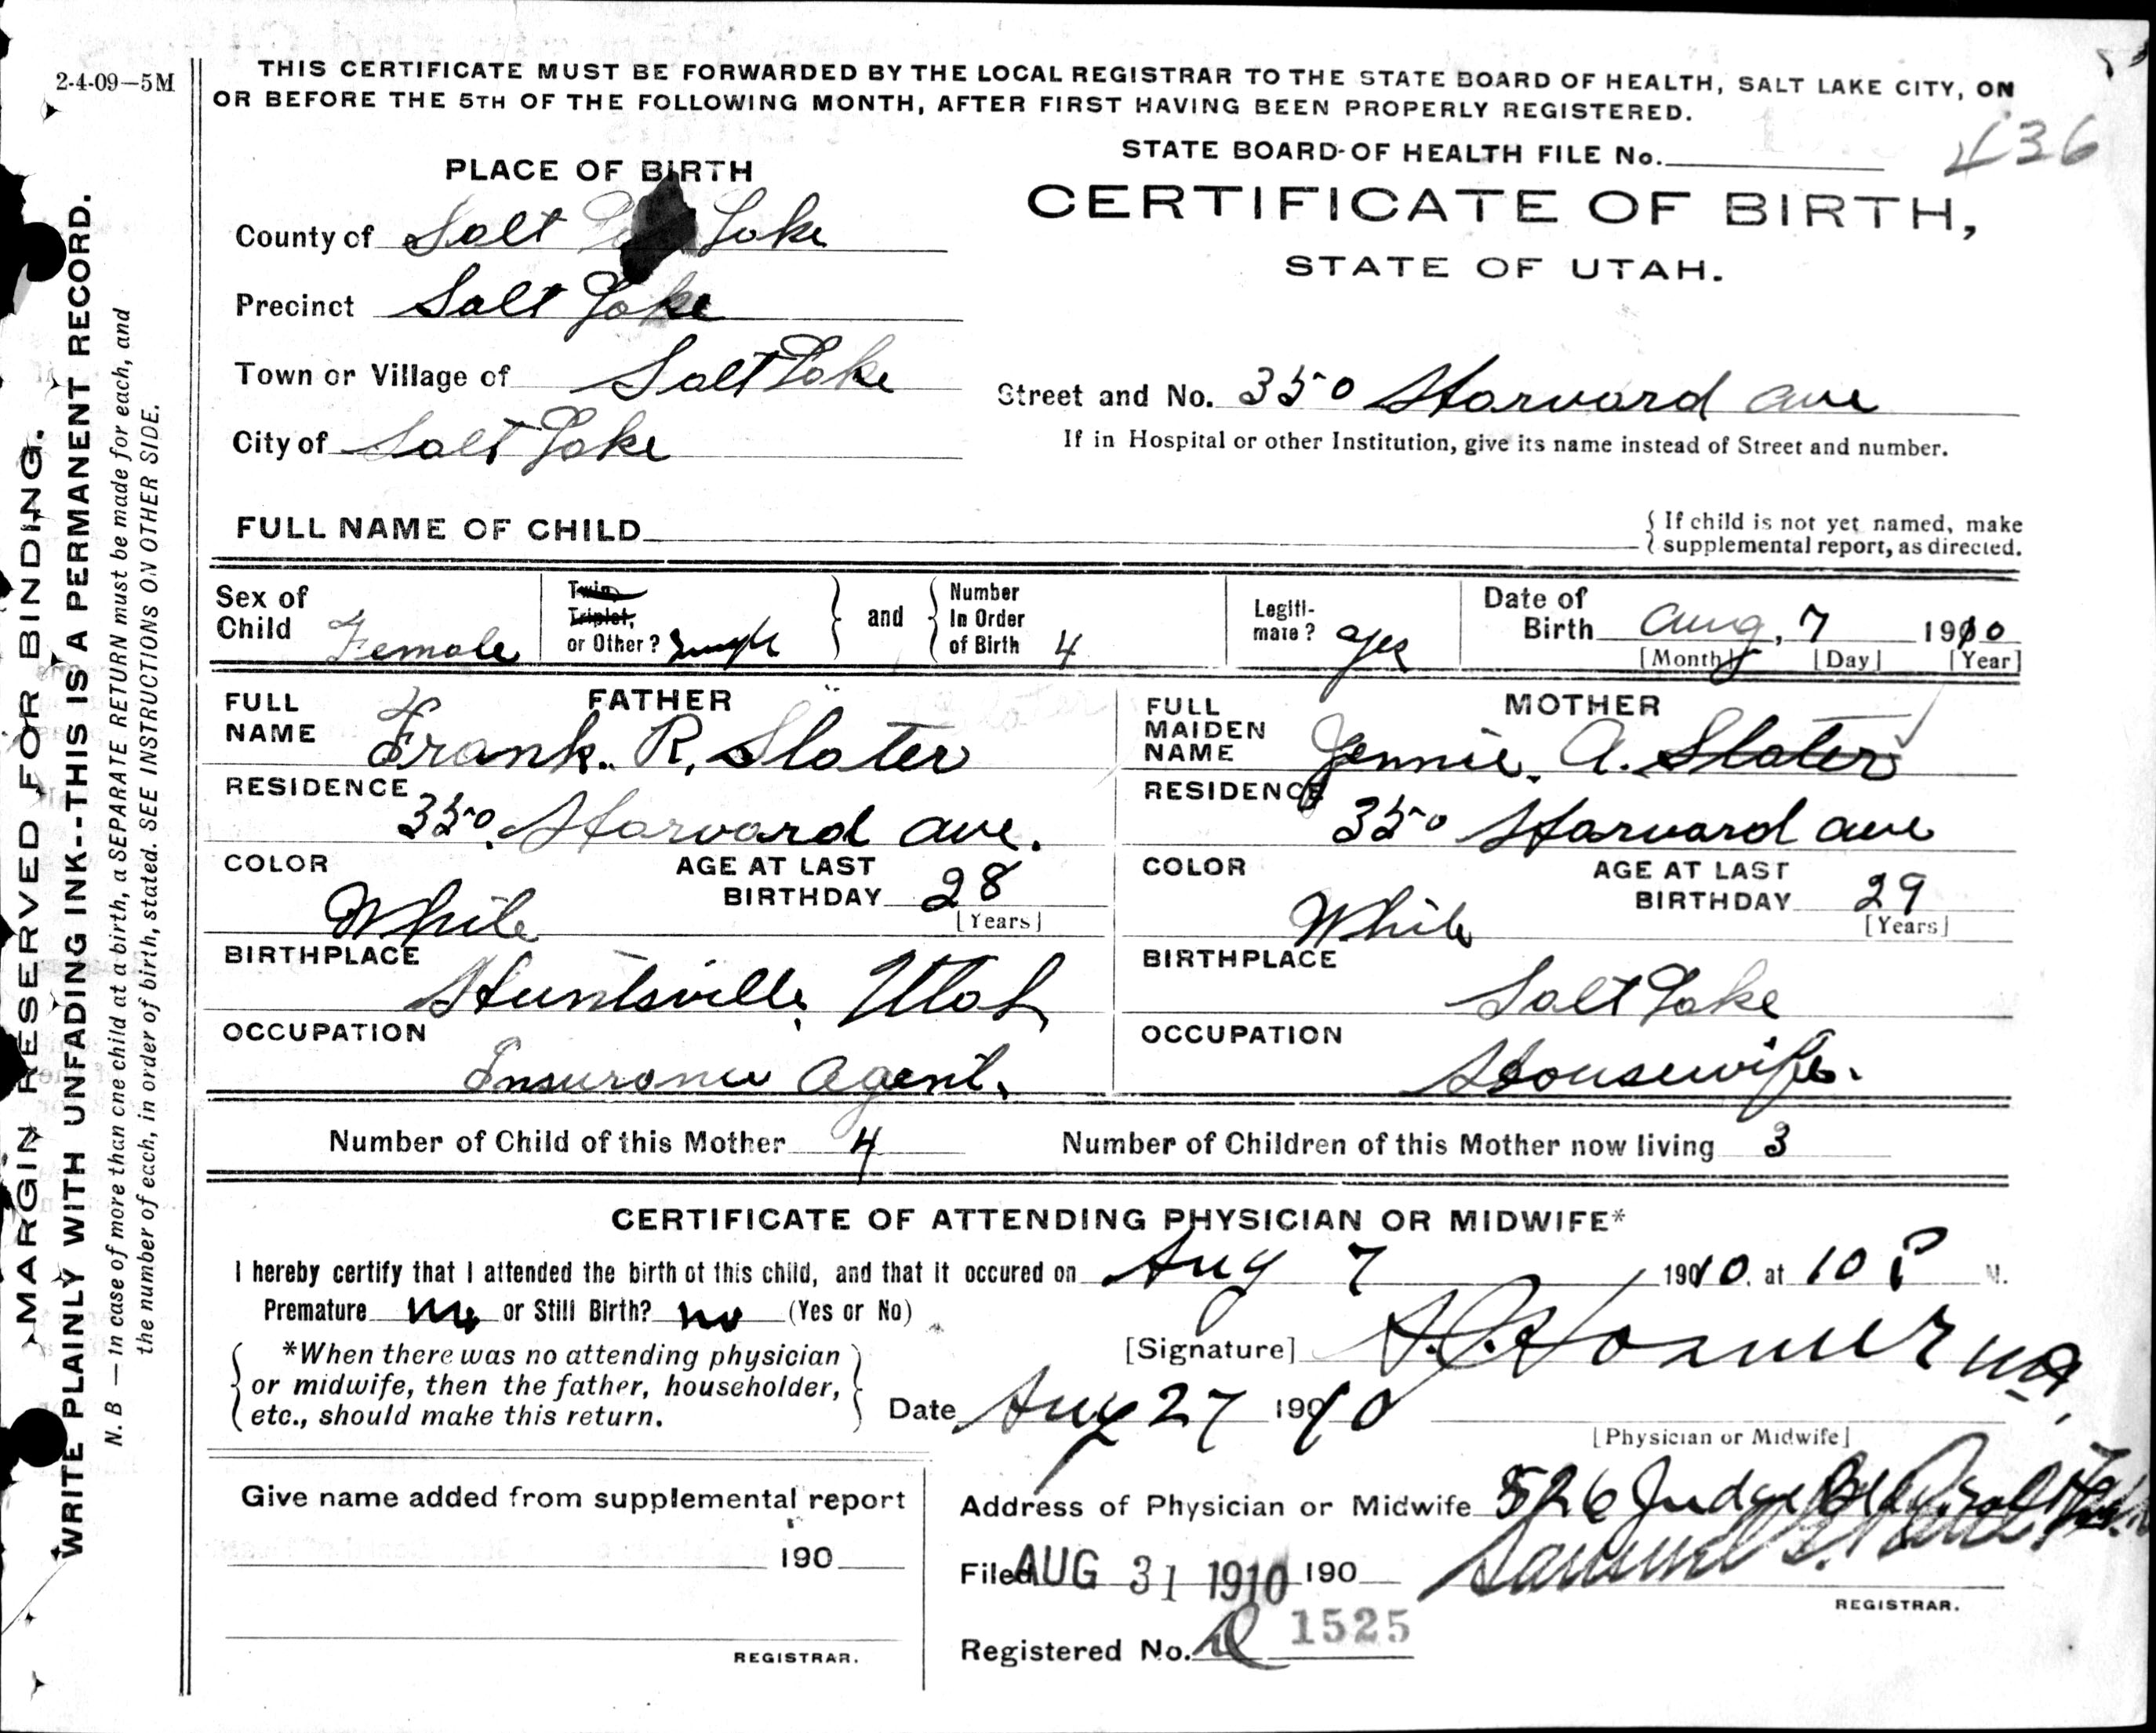 2-4-09—5M
THIS CERTIFICATE MUST BE FORWARDED BY THE LOCAL REGISTRAR TO THE STATE BOARD OF HEALTH, SALT LAKE CITY, ON
OR BEFORE THE 5TH OF THE FOLLOWING MONTH, AFTER FIRST HAVING BEEN PROPERLY REGISTERED.
STATE BOARD OF HEALTH FILE No. 436
PLACE OF BIRTH
CERTIFICATE OF BIRTH,
STATE OF UTAH.
County of Salt Lake
Precinct Salt Lake
Town or Village of Salt Lake
Street and No. 350 Harvard ave
City of Salt Lake
If in Hospital or other Institution, give its name instead of Street and number.
FULL NAME OF CHILD
{ If child is not yet named, make
{ supplemental report, as directed.
Sex of Child Female
Twin, Triplet, or Other? Single } and { Number In Order of Birth 4
Legiti-mate? yes
Date of Birth Aug, 7 1910
[Month] [Day] [Year]
FATHER
FULL NAME Frank. R. Slater
RESIDENCE 350 Harvard ave.
COLOR White
AGE AT LAST BIRTHDAY 28
[Years]
BIRTHPLACE Huntsville, Utah
OCCUPATION Insurance Agent.
MOTHER
FULL MAIDEN NAME Jennie. A. Slater
RESIDENCE 350 Harvard ave
COLOR White
AGE AT LAST BIRTHDAY 29
[Years]
BIRTHPLACE Salt Lake
OCCUPATION Housewife.
Number of Child of this Mother 4 Number of Children of this Mother now living 3
CERTIFICATE OF ATTENDING PHYSICIAN OR MIDWIFE*
I hereby certify that I attended the birth of this child, and that it occured on Aug 7 1910. at 10 P M.
Premature no or Still Birth? no (Yes or No)
[Signature]
*When there was no attending physician
or midwife, then the father, householder,
etc., should make this return.
Date Aug 27 1910
[Physician or Midwife]
Give name added from supplemental report
190
REGISTRAR.
Address of Physician or Midwife 526 Judge Bldg.
Filed AUG 31 1910 190
REGISTRAR.
Registered No. 1525
MARGIN RESERVED FOR BINDING.
WRITE PLAINLY WITH UNFADING INK--THIS IS A PERMANENT RECORD.
N. B —In case of more than one child at a birth, a SEPARATE RETURN must be made for each, and
the number of each, in order of birth, stated. SEE INSTRUCTIONS ON OTHER SIDE.